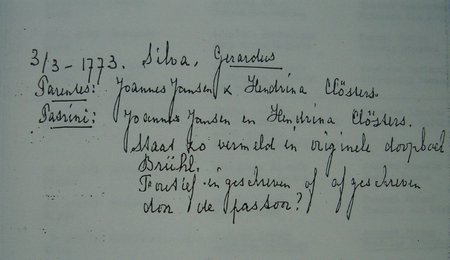 3/3 - 1773. Silva, Gerardus
Parentes: Joannes Jansen & Hendrina Clösters.
Patrini: Joannes Jansen en Hendrina Clösters.
Staat zo vermeld in originele doopboek
Brühl.
Foutief ingeschreven of afgeschreven
door de pastoor?